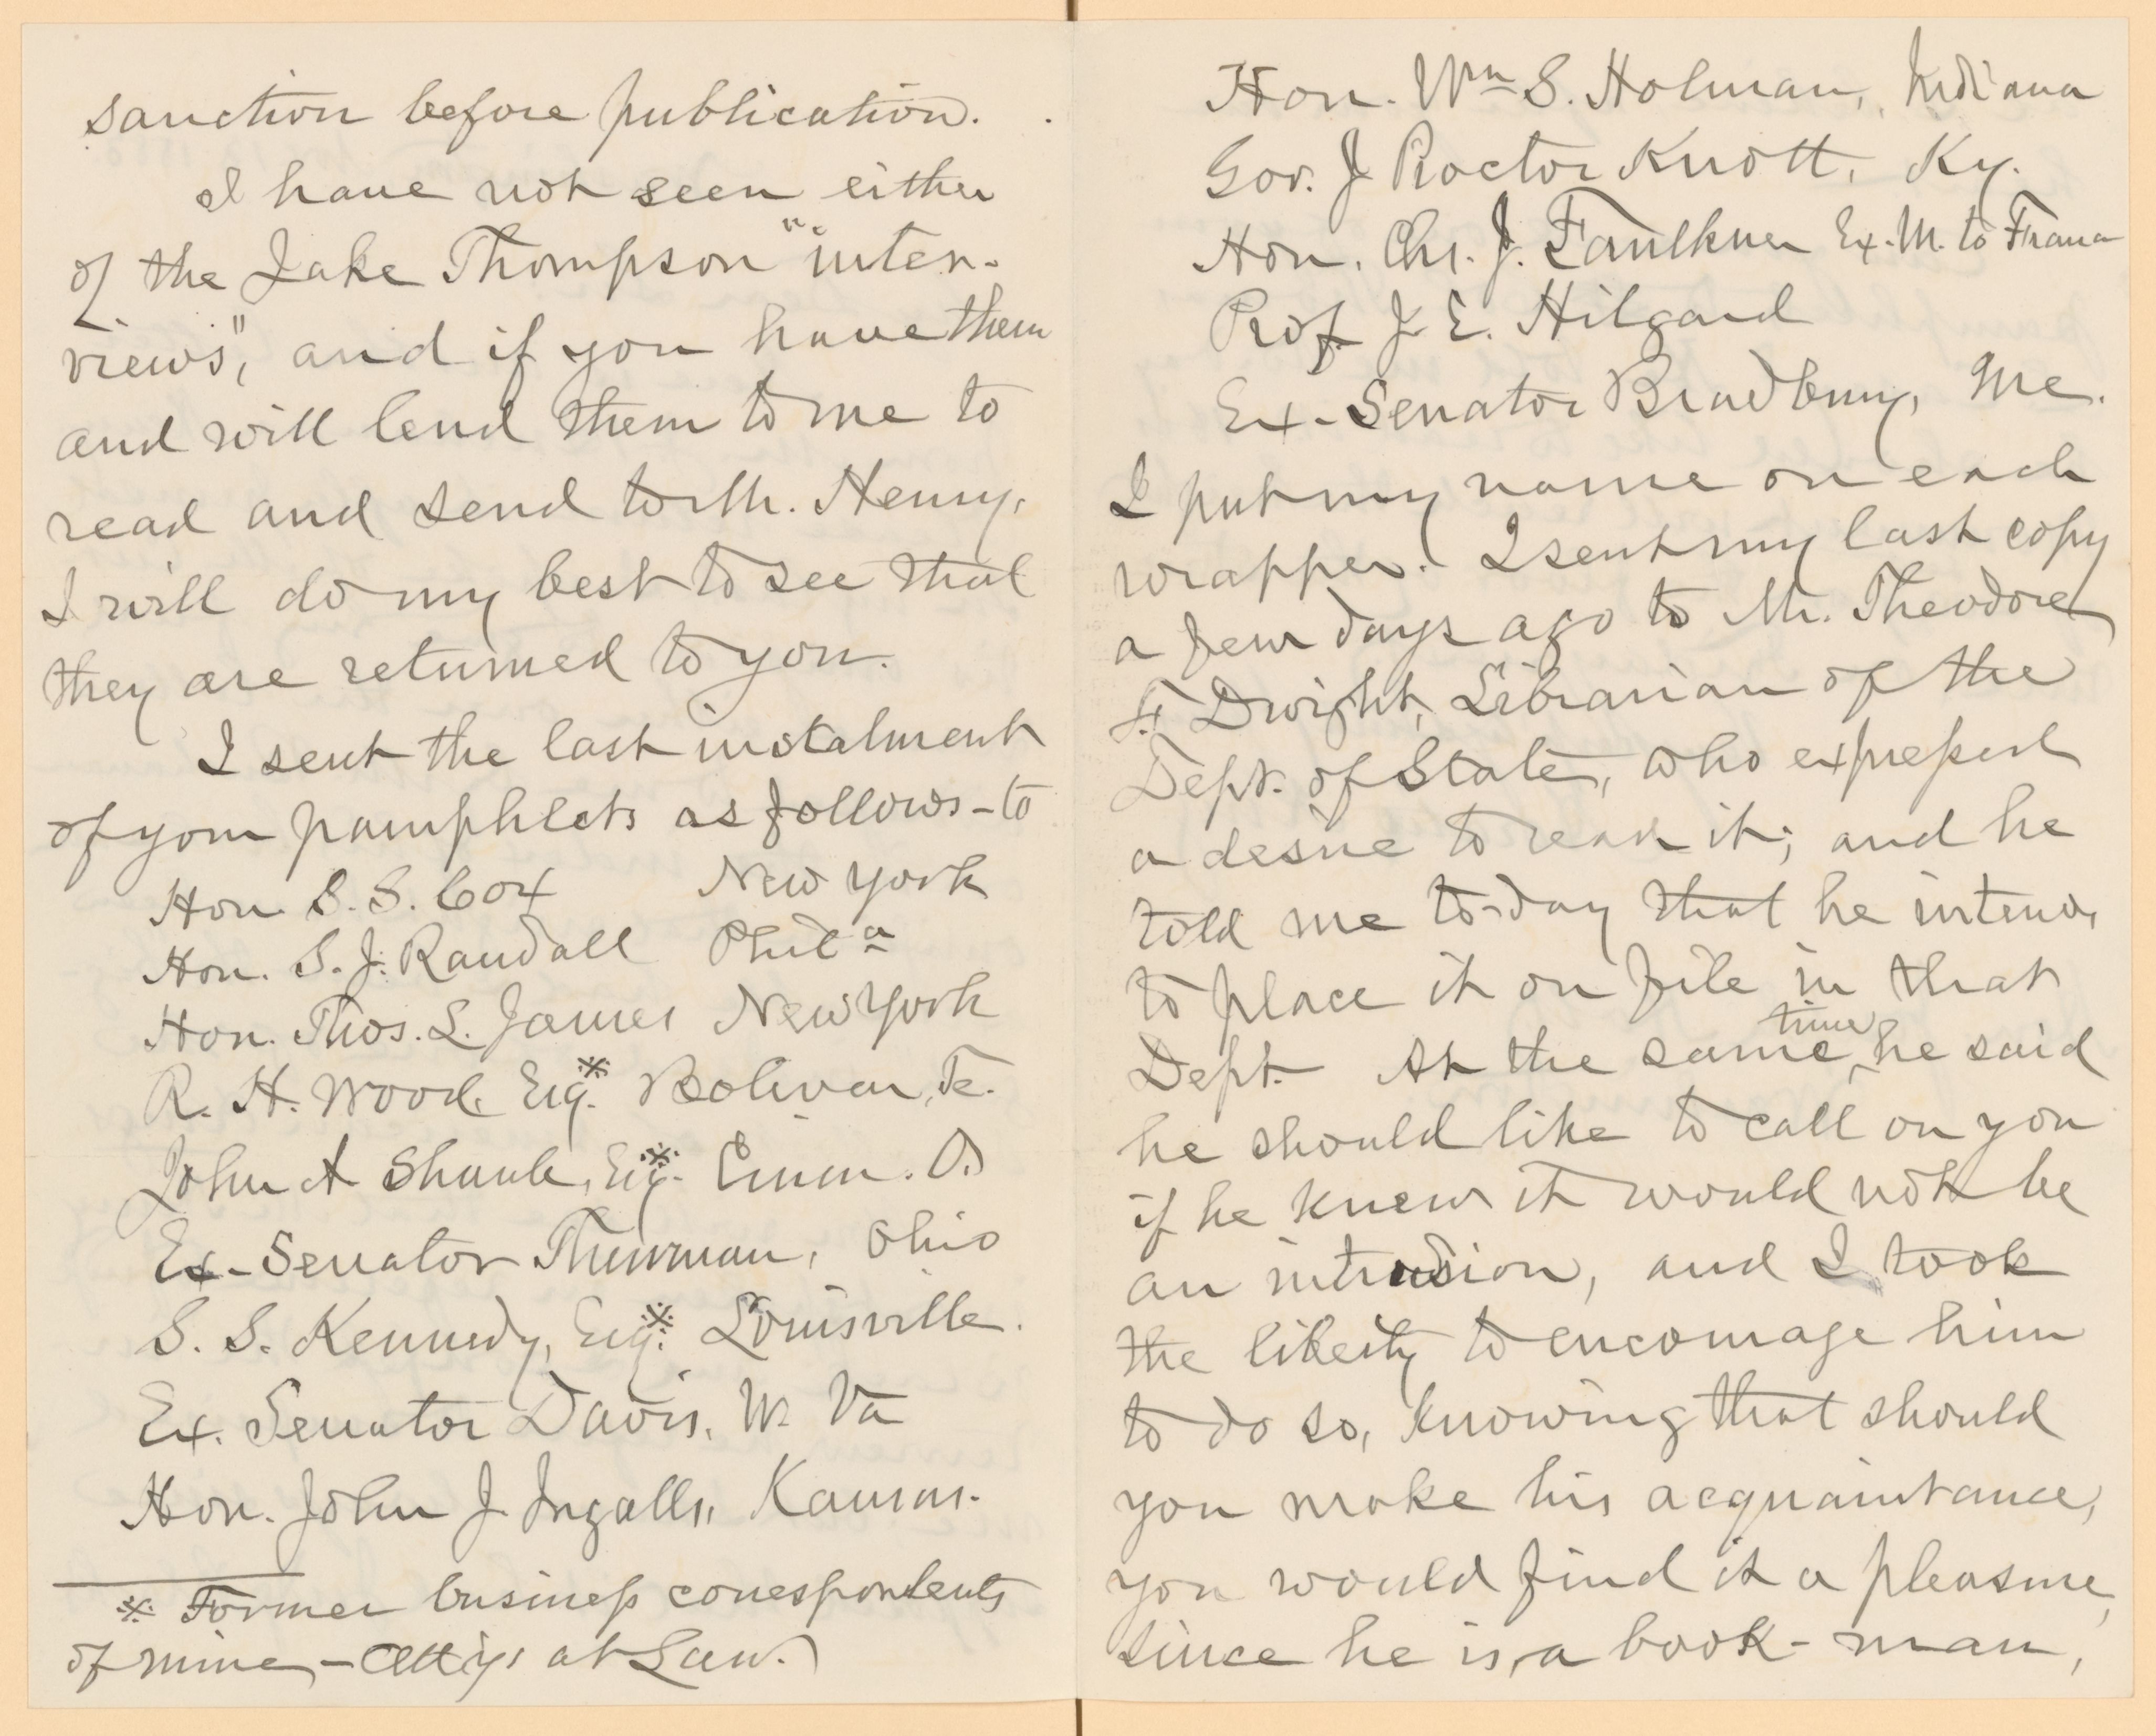 sanction before publication.
I have not seen either
of the Jake Thompson "inter-
views", and if you have them
and will lend them to me to
read and send to Mr. Henry,
I will do my best to see that
they are returned to you.
I sent the last instalment
of your pamphlets as follows - to
Hon. S. S. Cox New York
Hon. S. J. Randall Phila
Hon. Thos. L. James New York
R. H. Wood, Esq.※ Bolivar, Te.
John A Shank, Esq.※ Cinn. O.
Ex-Senator Thurman, Ohio
S. S. Kennedy, Esq.※ Louisville.
Ex. Senator Davis, W. Va
Hon. John J. Ingalls, Kansas.
※ Former business correspondents
of mine, - Att'ys at Law.
Hon. Wm S. Holman, Indiana
Gov. J Proctor Knott, Ky.
Hon. Chs. J. Faulkner Ex. M. to France
Prof. J. E. Hilgard
Ex-Senator Bradbury, Me.
I put my name on each
wrapper. I sent my last copy
a few days ago to Mr. Theodore
F. Dwight, Librarian of the
Dept. of State, who expressed
a desire to read it; and he
told me to-day that he intends
to place it on file in that
Dept. At the same time, he said
he should like to call on you
if he knew it would not be
an intrusion, and I took
the liberty to encourage him
to do so, knowing that should
you make his acquaintance,
you would find it a pleasure,
since he is, a book-man,